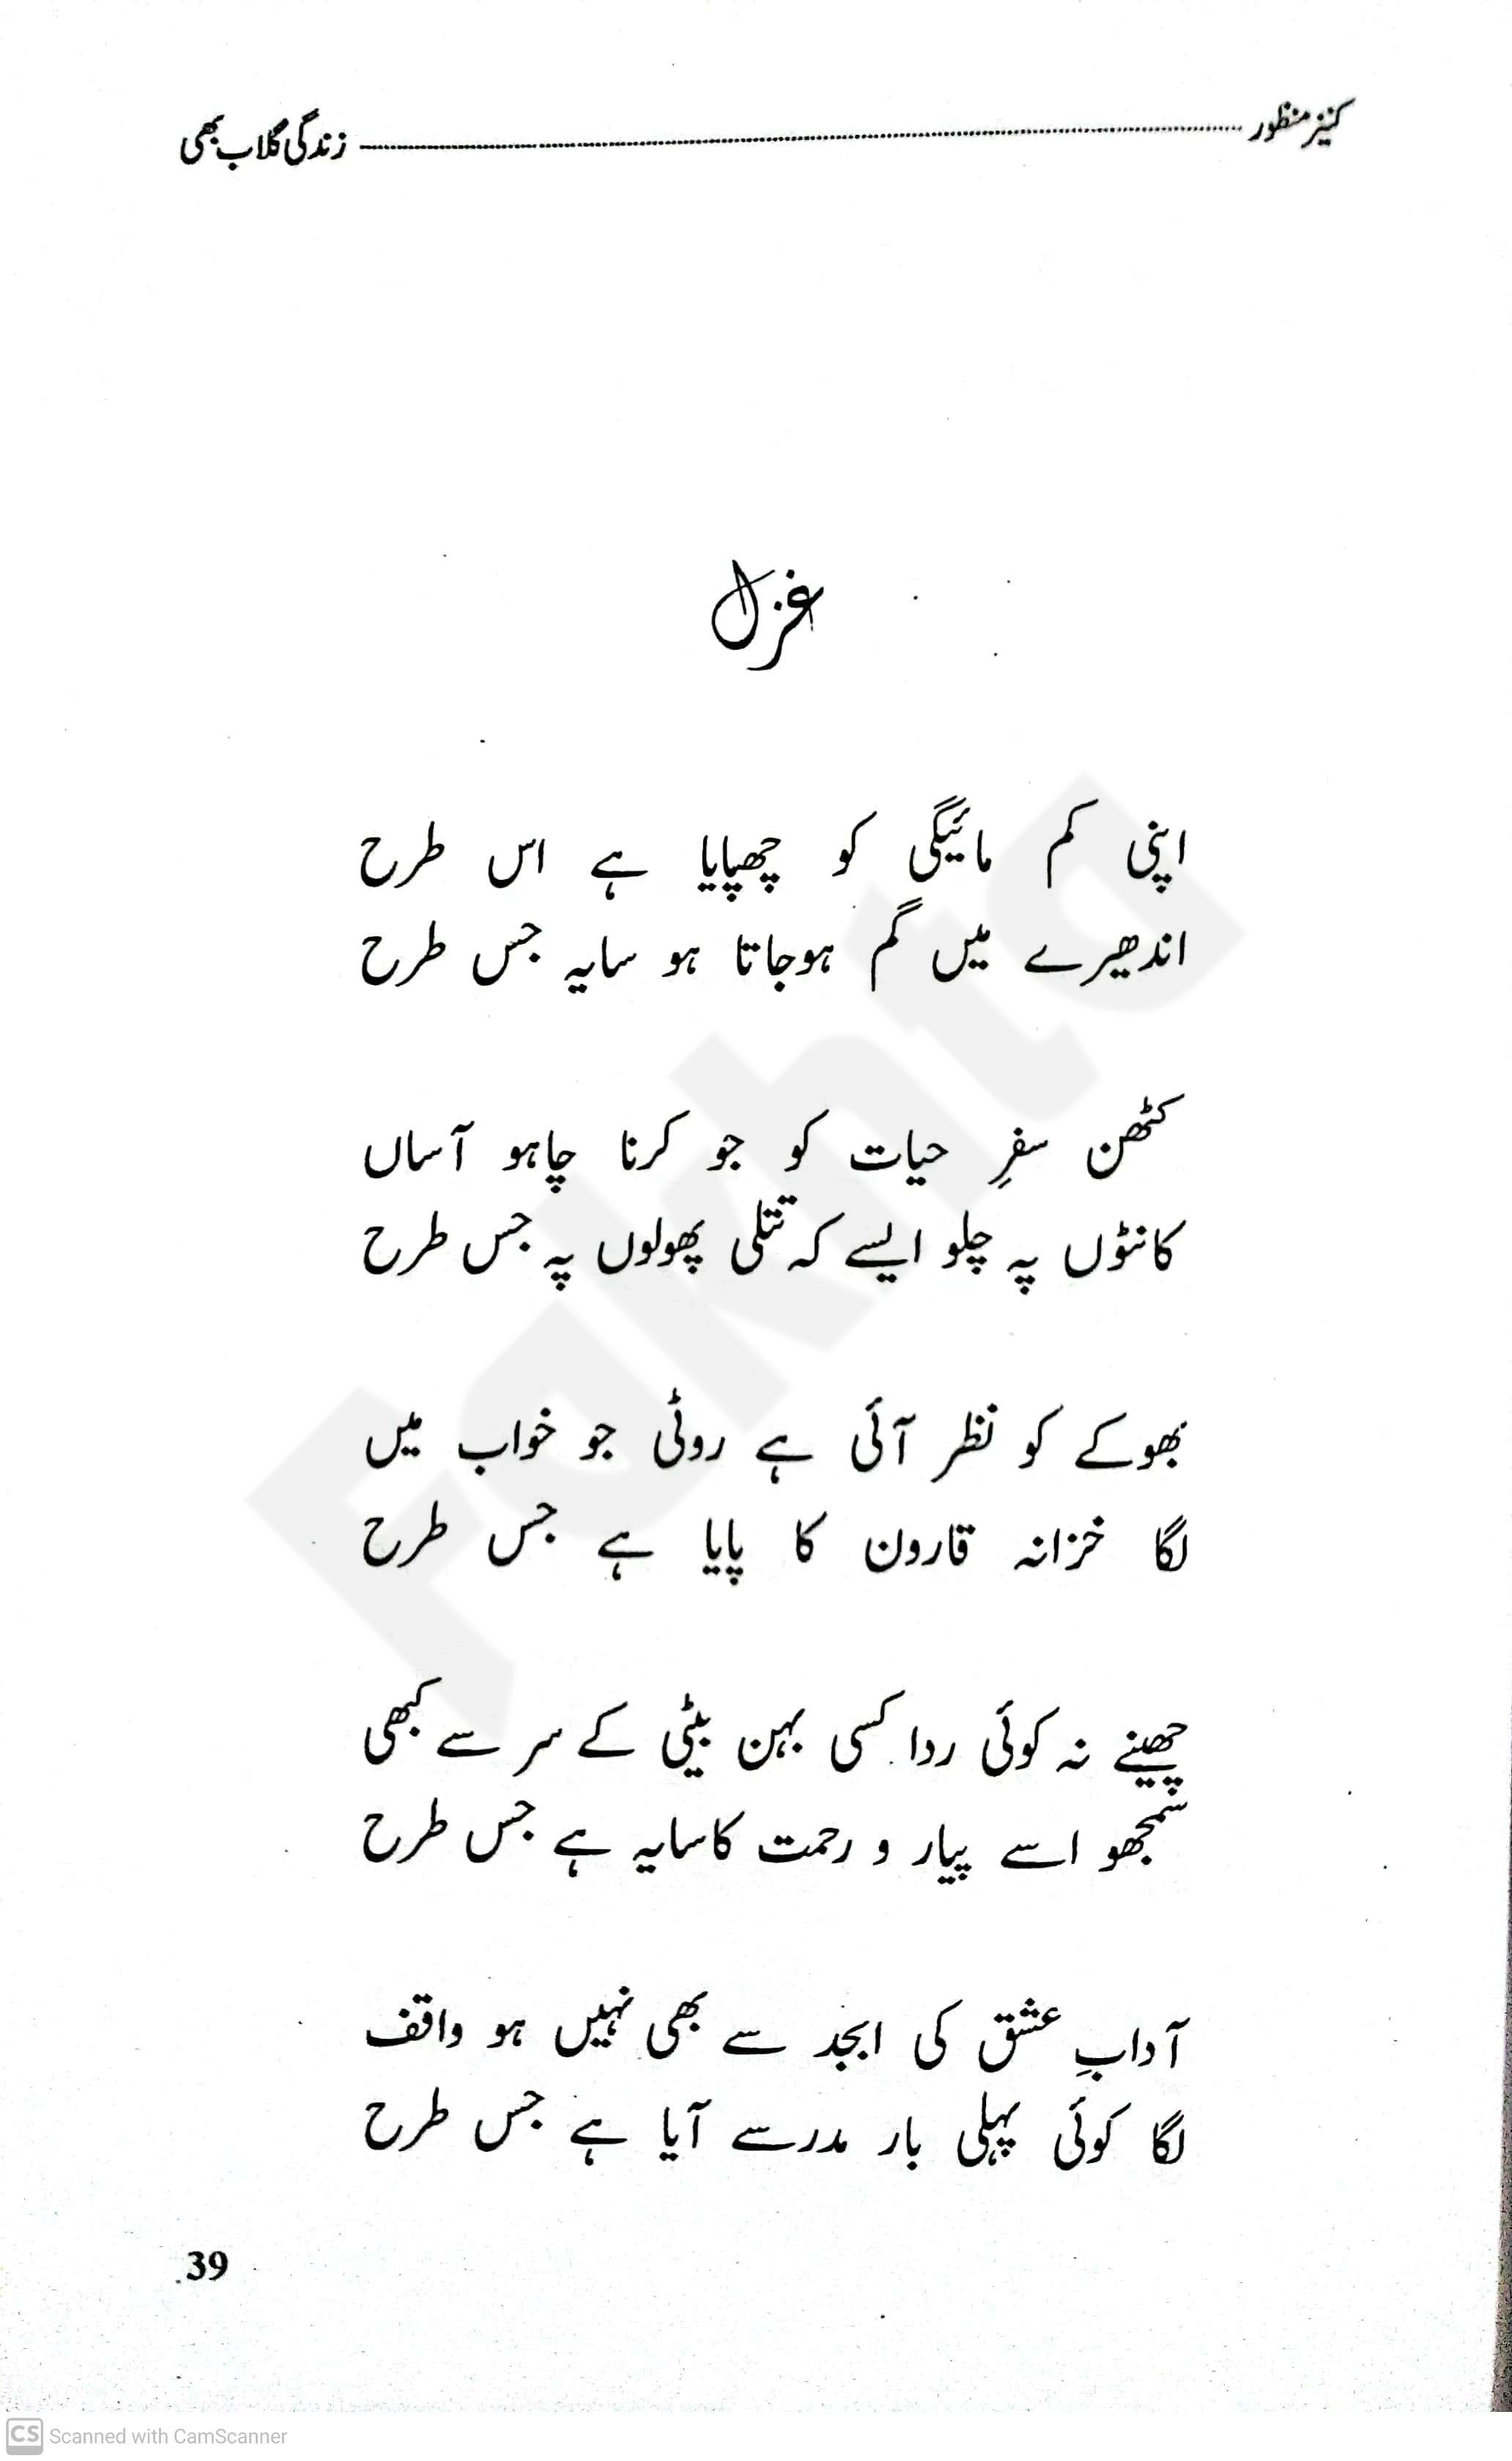 کنیز منظور ------------ زندگی گلاب بھی
غزل
اپنی کم مائیگی کو چھپایا ہے اس طرح
اندھیرے میں گم ہوجاتا ہو سایہ جس طرح
کٹھن سفرِ حیات کو جو کرنا چاہو آساں
کانٹوں پہ چلو ایسے کہ تتلی پھولوں پہ جس طرح
بھوکے کو نظر آئی ہے روٹی جو خواب میں
لگا خزانہ قارون کا پایا ہے جس طرح
چھینے نہ کوئی ردا کسی بہن بیٹی کے سر سے کبھی
سمجھو اسے پیار و رحمت کاسایہ ہے جس طرح
آدابِ عشق کی ابجد سے بھی نہیں ہو واقف
لگا کوئی پہلی بار مدرسے آیا ہے جس طرح
39
Fakhta
CS Scanned with CamScanner